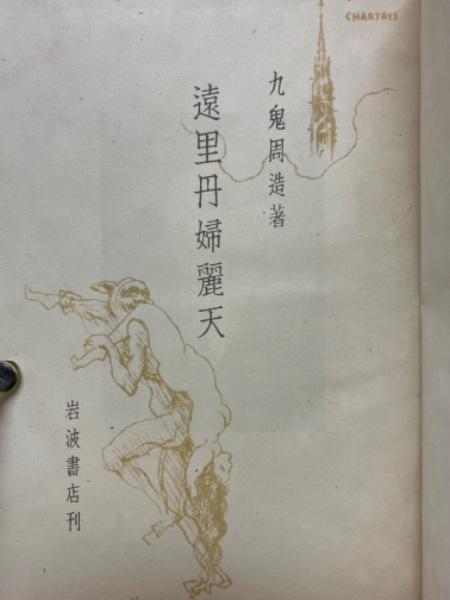 CHARTRES
九鬼周造著
遠里丹婦麗天
岩波書店刊